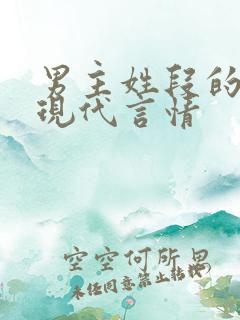 男主姓段的
现代言情
空空何所思
未经同意禁止转载